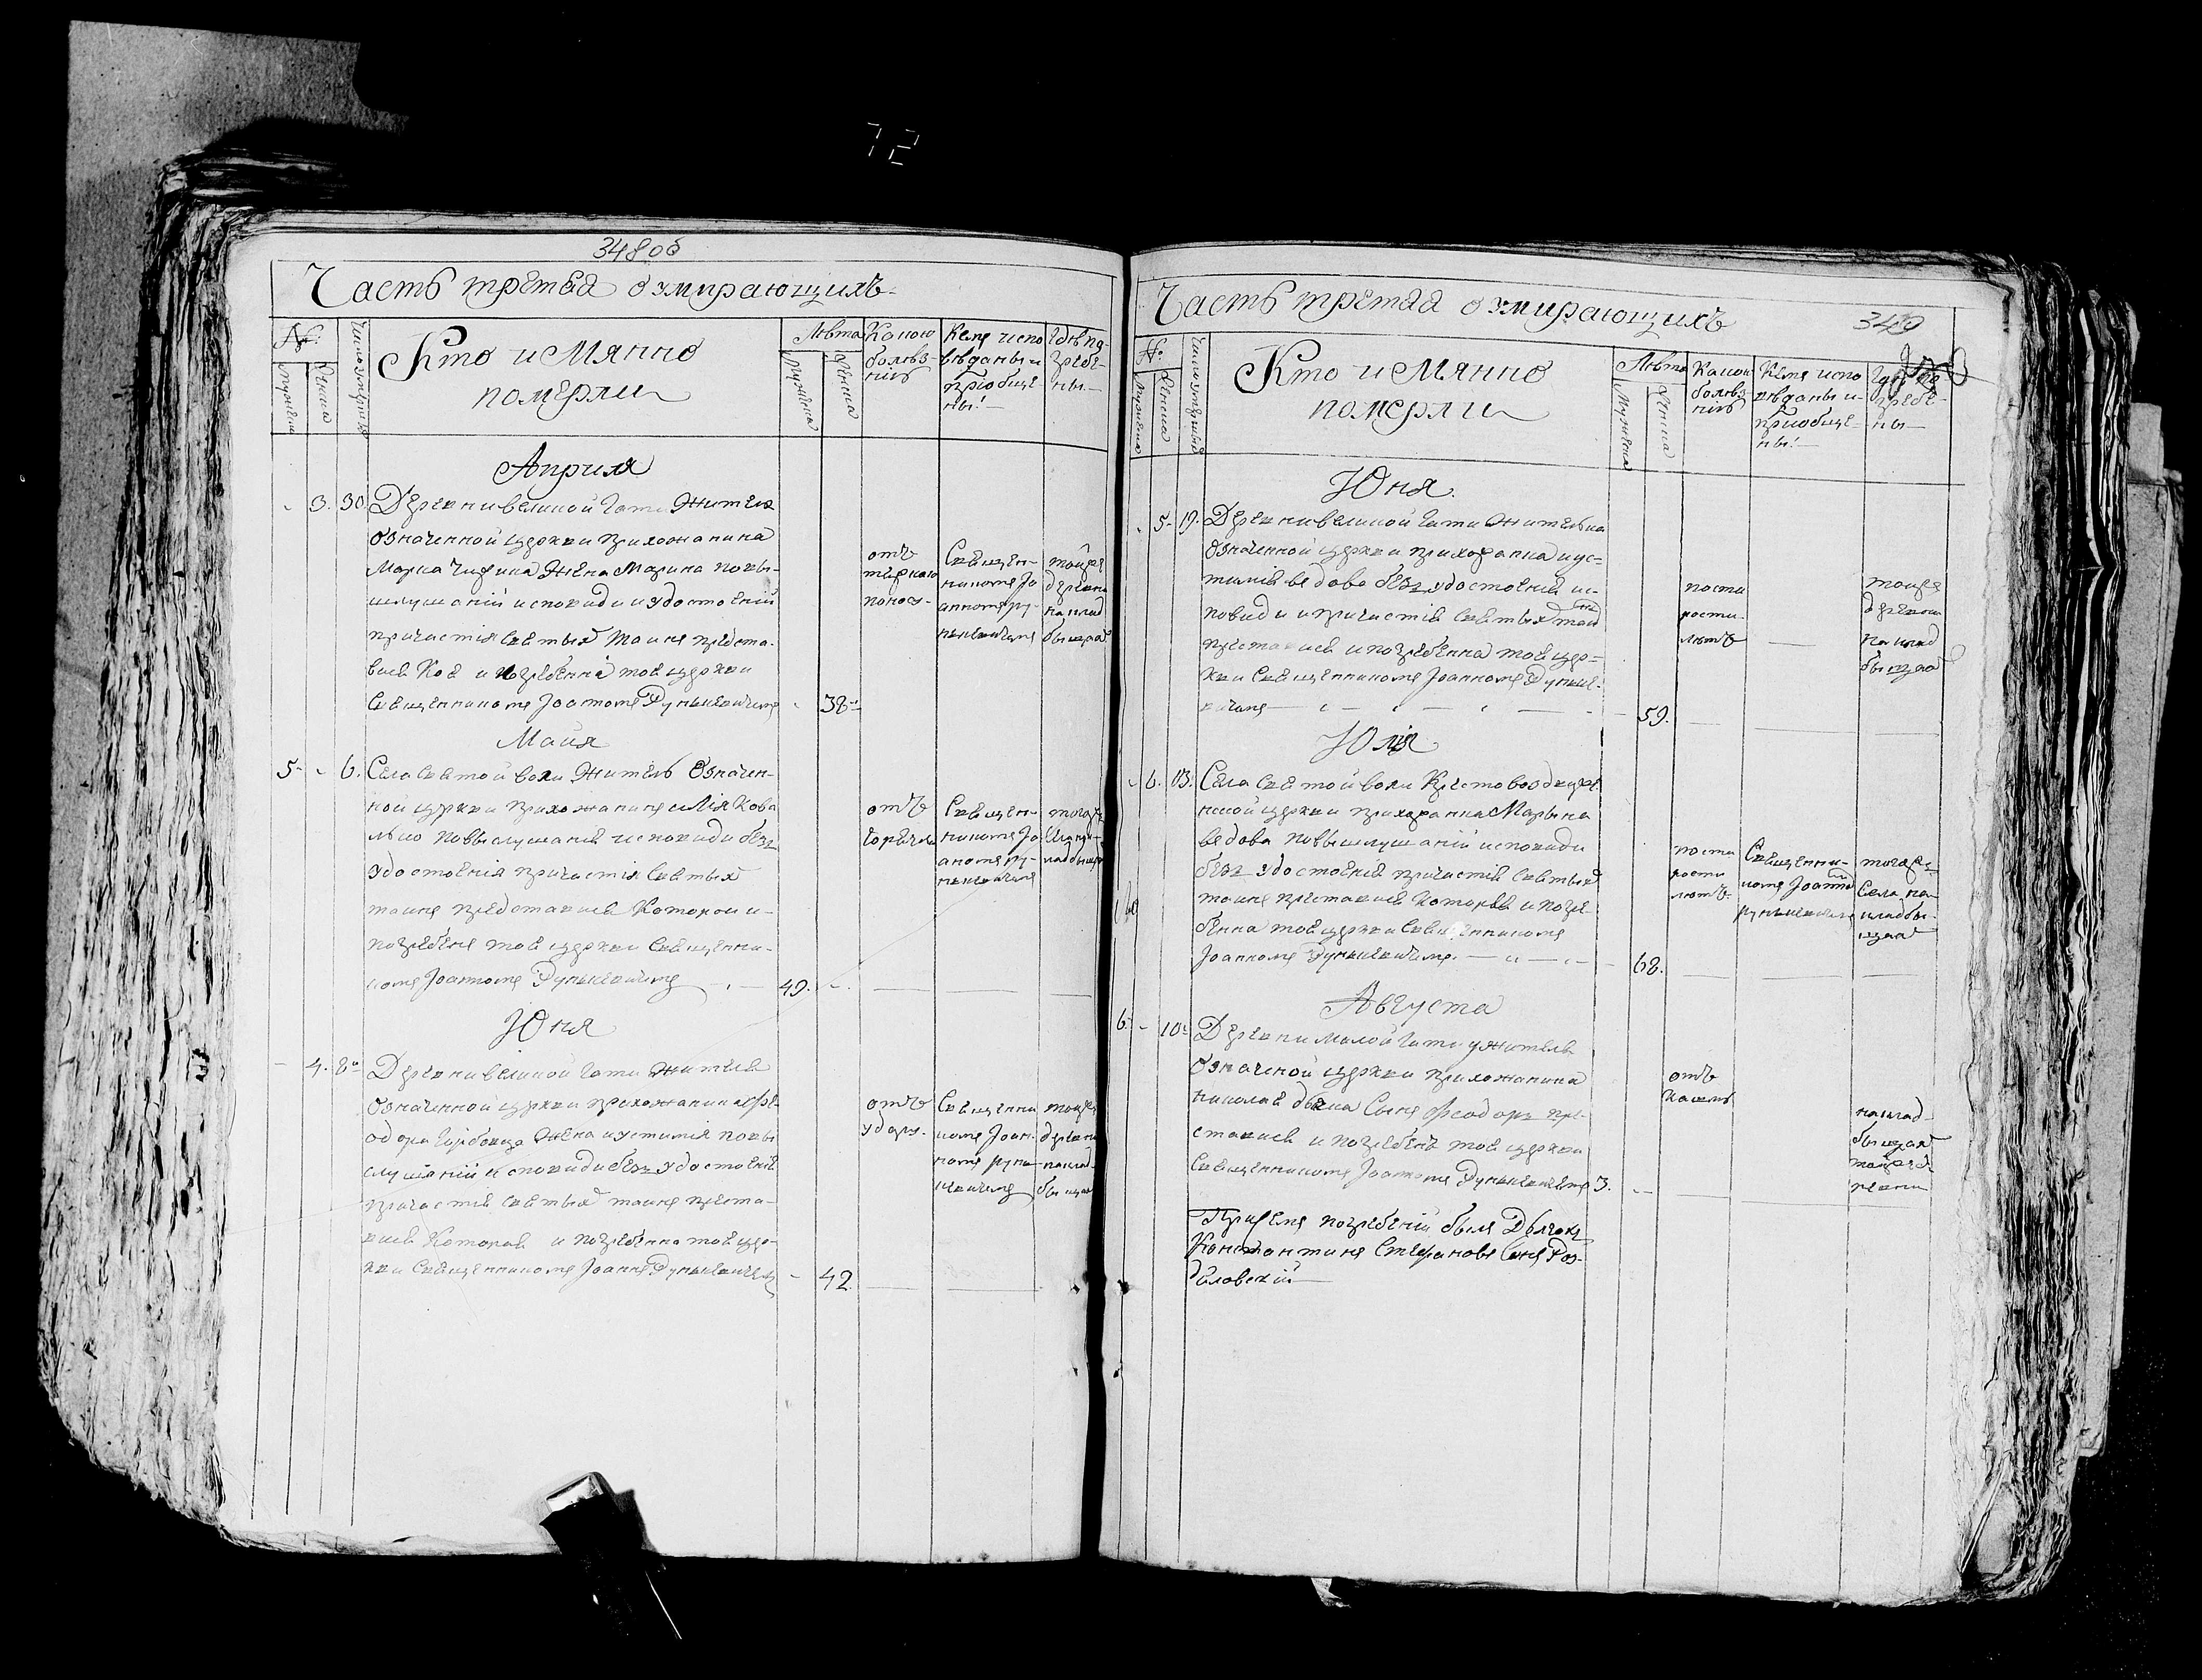 72
348об
Часть третья о умирающихъ
№:
Число умерших
Кто имянно
померли
Лѣта
мужеска
женска
Какою
болѣз-
нію
Кемъ испо
вѣданы и
пріобще
ны
Гдѣ по-
гребе-
ны
Априля
3. 30. Деревни великой Гати жителя
означенной церкви прихожанина
Марка жена Марина повы-
слушаній исповиди и удостоеній
причастія святыхъ таинъ преста-
вися коя и погребенна тоя церкви
священникомъ Іоанномъ Рунькевичемъ 38
отъ
священ-
никомъ Іо
анномъ Ру-
нькевичемъ
тойже
деревни
на клад
бищахъ
Майя
5 - 6. Села святой воли житель означен-
ной церкви прихожанинъ Илія Кова
льио повыслушаній исповиди безъ
удостоенія причастія святыхъ
таинъ представися которои и-
погребенъ тоя церкви священни-
комъ Іоанномъ Рунькевичемъ 49.
отъ
горячки
священ-
никомъ Іо
аномъ Ру-
нькевичемъ
тогожъ
села на
кладбищах
Юня
4. 8. Деревни великой Гати жителя
означенной церкви прихожанина Фе-
одора Горбовца жена иустимія повы
слушаній исповиди безъ удостоенія
причастія святыхъ таинъ преста-
вися которая и погребенна тоя цер-
кви священникомъ Іоанномъ Рунькевичемъ 42
отъ
удару
священни
комъ Іоан-
номъ Рунь
кевичемъ
тойже
деревни
на клад-
бищах
349
Часть третья о умирающихъ
№
Число умерших
Кто имянно
померли
Лѣта
мужеска
женска
Какою
болѣз-
нію
Кемъ испо
вѣданы и
пріобще-
ны
Гдѣ по-
гребе-
ны
Юня
5 - 19. Деревни великой Гати жителька
означенной церкви прихожанка иус-
тимія вдова безъ удостоенія ис-
повиди и причастія святыхъ таинъ
преставися и погребенна тоя цер-
кви священникомъ Іоанномъ Рунке-
вичемъ 59.
по ста
рости
лѣтъ
тойже
деревни
на клад
бищахъ
Юлія
6. 13. Села святой воли Крестовоздвиже
нской церкви прихожанка Марьяна
вдова повыслушаній исповиди
безъ удостоенія причастія святыхъ
таинъ преставися которая и погре-
бенна тоя церкви священникомъ
Іоанномъ Рунькевичемъ 68.
по ста
рости
лѣтъ
священни-
комъ Іоанно
Рунькевичемъ
тогоже
села на
кладби-
щахъ
Августа
6. - 10. Деревни Малой Гати жителя
означеной церкви прихожанина
николая сынъ Феодоръ пре-
ставися и погребенъ тоя церкви
священникомъ Іоанномъ Рунькевичемъ 3.
отъ
кашля
на клад-
бищахъ
тойже де-
ревни
При семъ погребеній былъ Дьячокъ
Константинъ Стефановъ сынъ Роз-